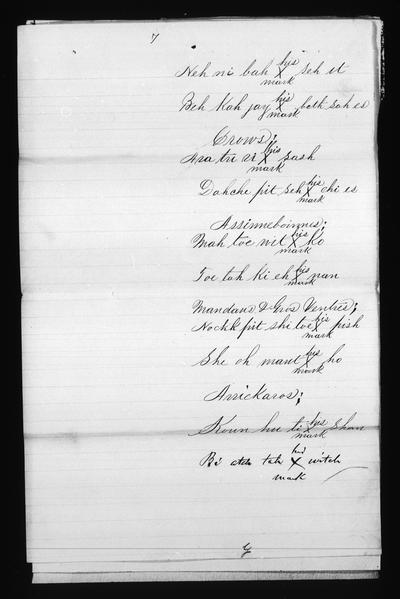 7
Neh ni bah his X mark seh it
Beh Kah jay his X mark beth sah es
Crows;
Ara tri ri his X mark sash
Dohche pit seh his X mark chi es
Assinneboinnes;
Mah toe wit his X mark ko
Toe tah Ki eh his X mark nan
Mandans & Gros Ventres;
Nochk pit shi toe his X mark pish
She oh mant his X mark ho
Arickaros;
Koun hei ti his X mark Shan
Bi atch tah his X mark witch